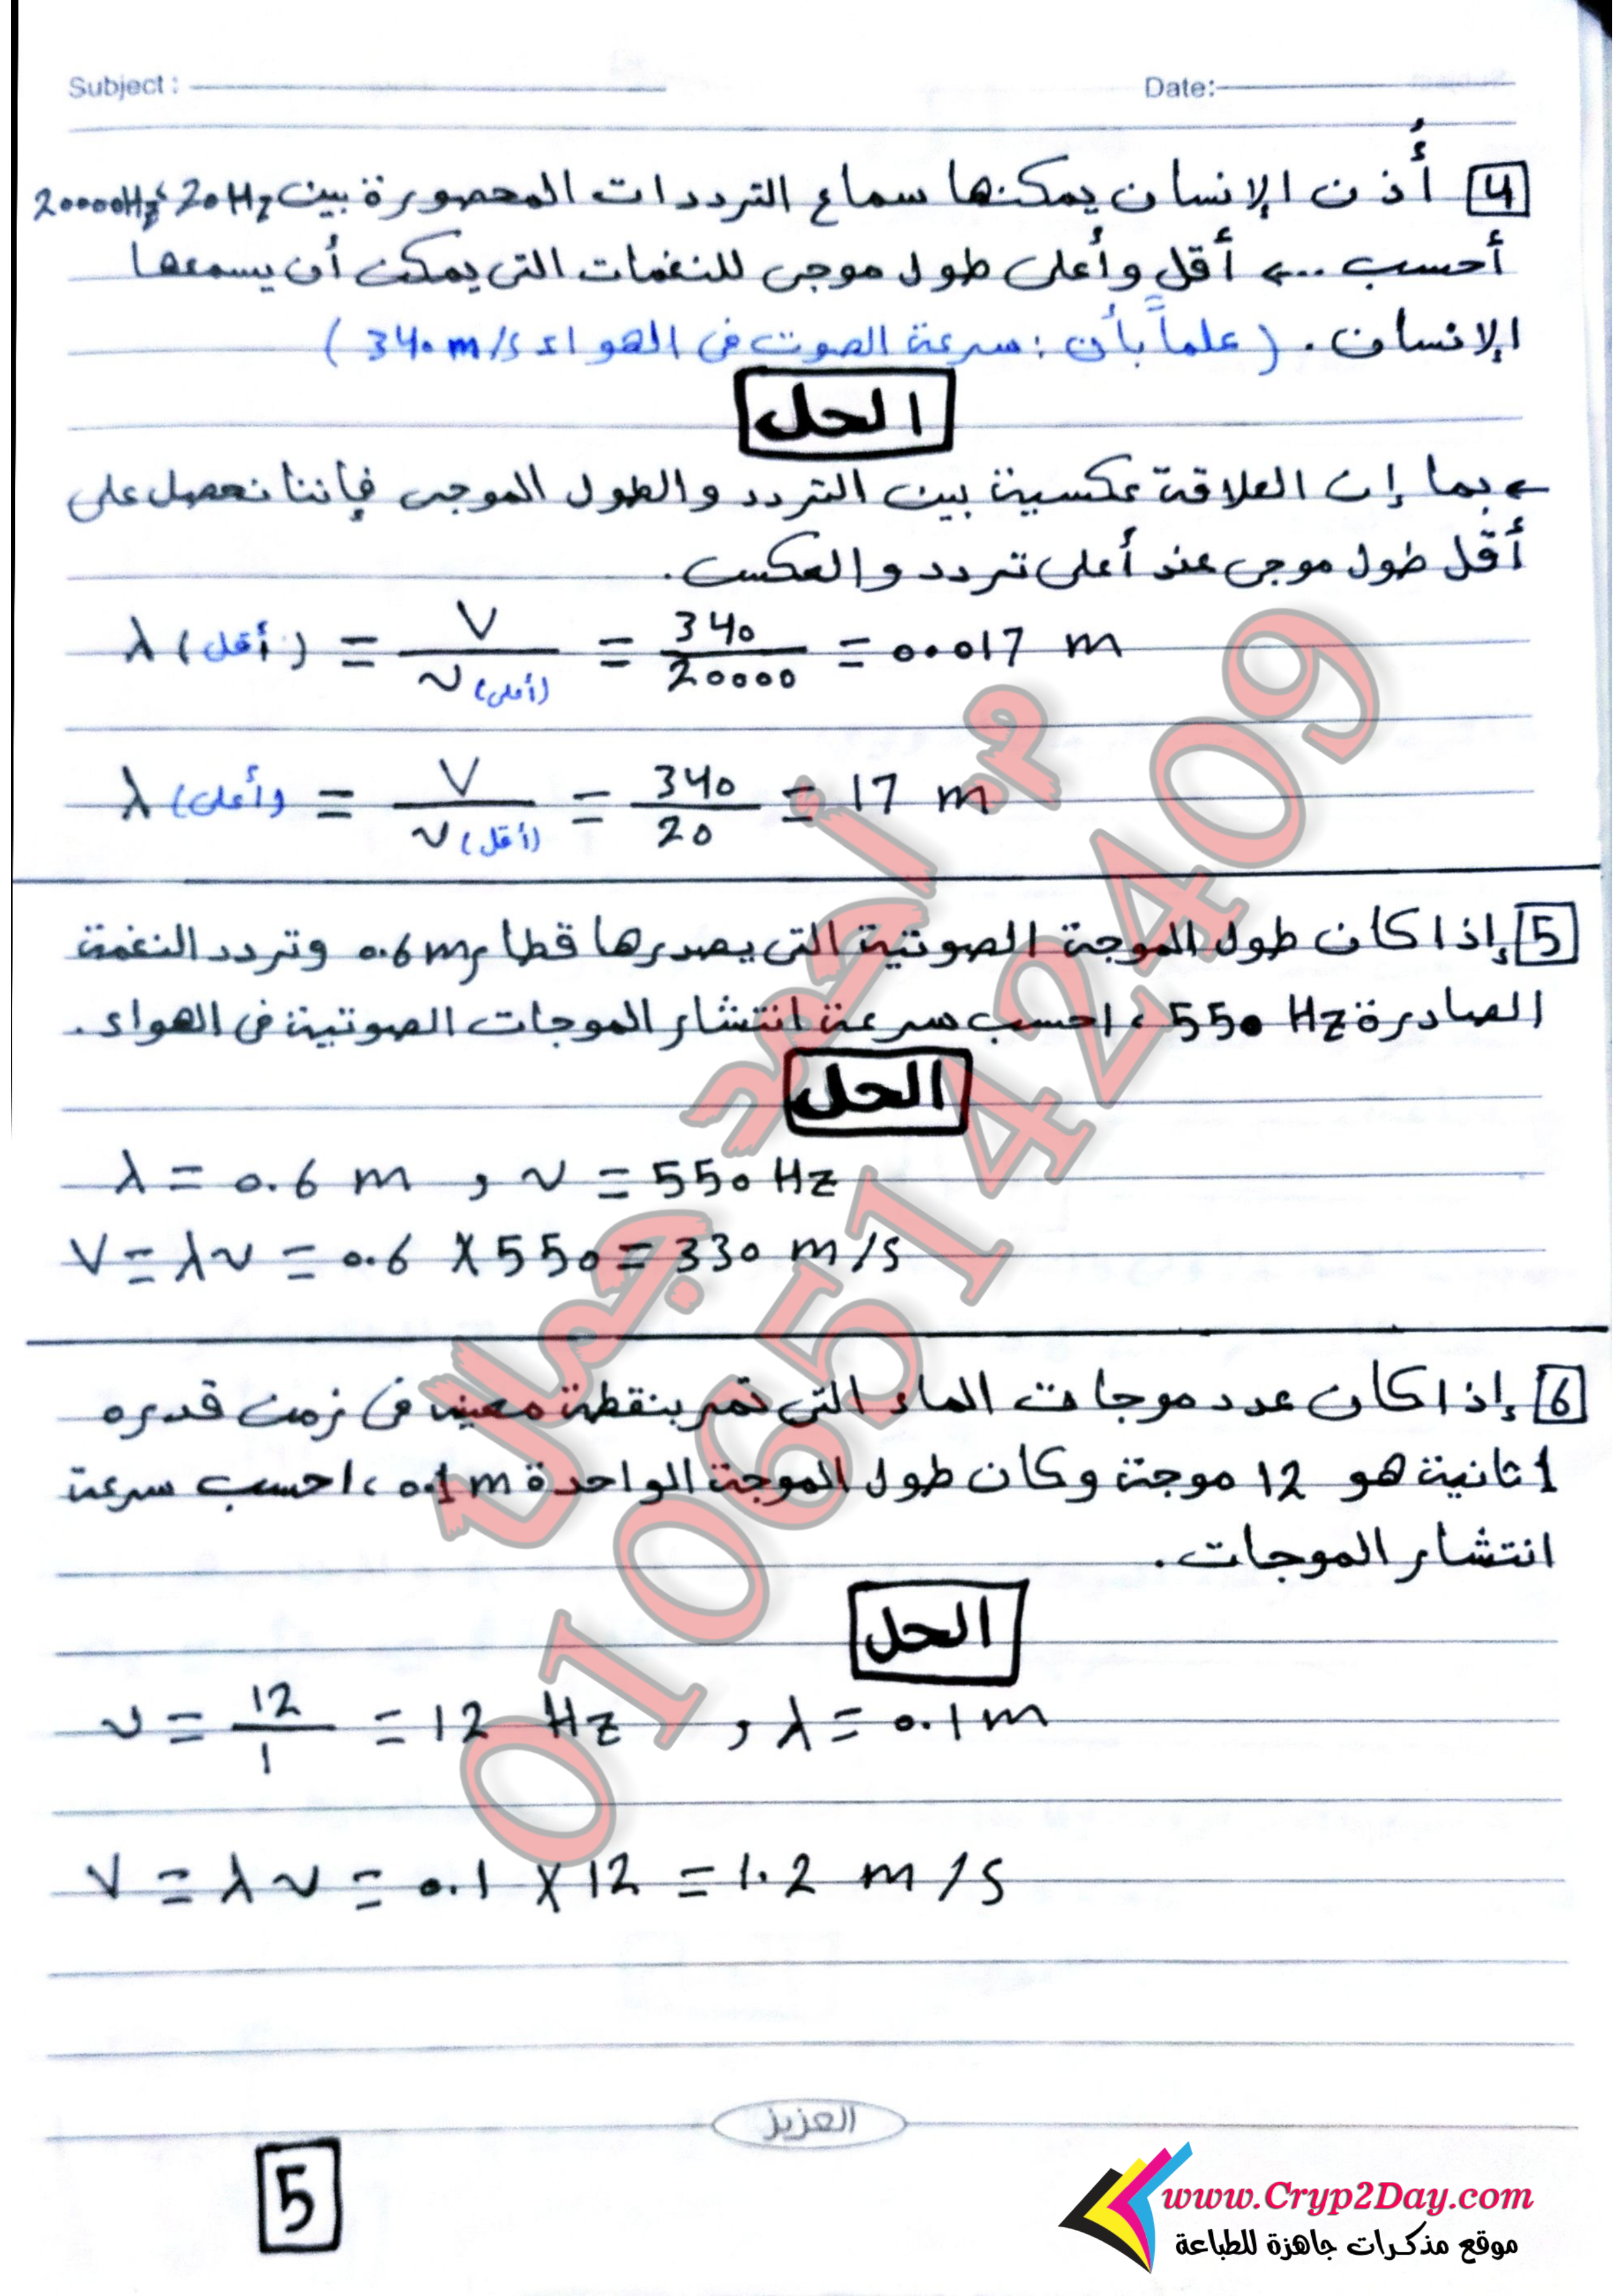 Subject :
Date:
4 أُذن الإنسان يمكنها سماع الترددات المحصورة بين 20Hz ، 20000Hz
أحسب ... أقل وأعلى طول موجى للنغمات التى يمكن أن يسمعها
الإنسان . ( علماً بأن : سرعة الصوت فى الهواء 340 m/s )
الحل
بما إن العلاقة عكسية بين التردد والطول الموجى فإننا نحصل على
أقل طول موجى عند أعلى تردد والعكس .
λ (أقل) = V / ν (أعلى) = 340 / 20000 = 0.017 m
λ (أعلى) = V / ν (أقل) = 340 / 20 = 17 m
5 إذا كان طول الموجة الصوتية التى يصدرها قطار 0.6m وتردد النغمة
الصادرة 550 Hz ، احسب سرعة انتشار الموجات الصوتية فى الهواء .
الحل
λ = 0.6 m , ν = 550 Hz
V = λν = 0.6 X 550 = 330 m/s
6 إذا كان عدد موجات الماء التى تمر بنقطة معينه فى زمن قدره
1 ثانية هو 12 موجة وكان طول الموجة الواحدة 0.1m ، احسب سرعة
انتشار الموجات .
الحل
ν = 12 / 1 = 12 Hz , λ = 0.1m
V = λν = 0.1 X 12 = 1.2 m/s
م. أحمد جمال
01065142409
العزيز
5
www.Cryp2Day.com
موقع مذكرات جاهزة للطباعة